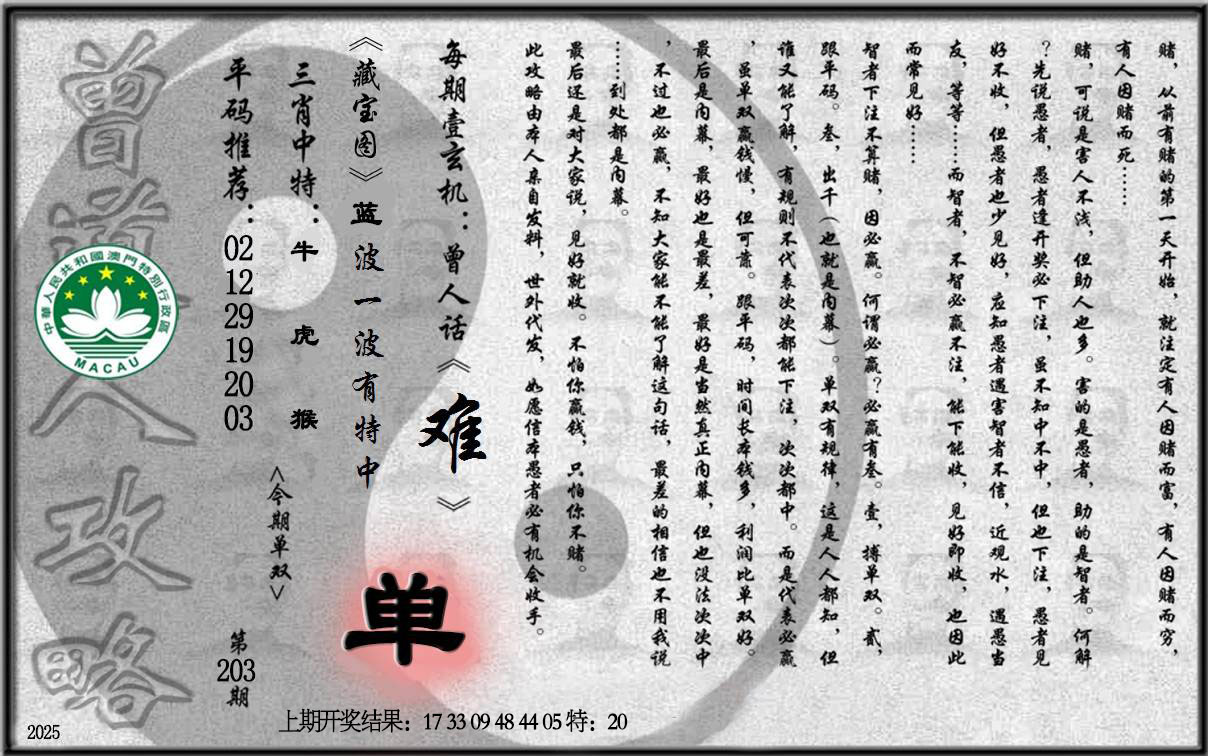 赌，从前有赌的第一天开始，就注定有人因赌而富，有人因赌而穷，
有人因赌而死……
赌，可说是害人不浅，但助人也多。害的是愚者，助的是智者。何解
？先说愚者，愚者逢开奖必下注，虽不知中不中，但也下注，愚者见
好不收，但愚者也少见好，应知愚者遇害智者不信，近观水，遇愚当
友，等等……而智者，不智必赢不注，能下能收，见好即收，也因此
而常见好……
智者下注不算赌，因必赢。何谓必赢？必赢有叁。壹，搏单双。贰，
跟平码。叁，出千（也就是内幕）。单双有规律，这是人人都知，但
谁又能了解，有规则不代表次次都能下注，次次都中。而是代表必赢
，虽单双赢钱慢，但可靠。跟平码，时间长本钱多，利润比单双好。
最后是内幕，最好也是最差，最好是当然真正内幕，但也没法次次中
，不过也必赢，不知大家能不能了解这句话，最差的相信也不用我说
……到处都是内幕。
最后还是对大家说，见好就收。不怕你赢钱，只怕你不赌。
此攻略由本人亲自发料，世外代发，如愿信本愚者必有机会收手。
每期壹玄机：曾人话《难》
《藏宝图》蓝波一波有特中
单
三肖中特：牛 虎 猴
<今期单双>
平码推荐：02 12 29 19 20 03
第203期
曾道人攻略
中華人民共和國澳門特別行政區
MACAU
上期开奖结果：17 33 09 48 44 05 特：20
2025